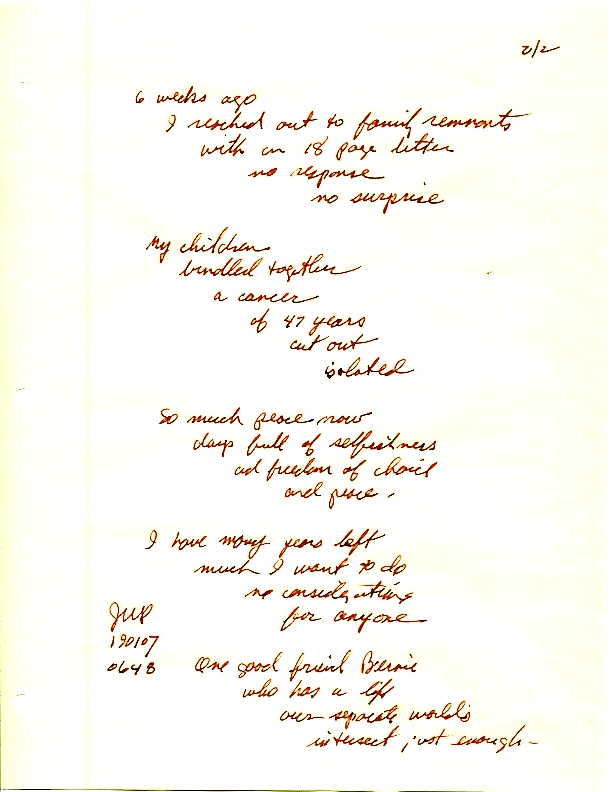 2/2
6 weeks ago
I reached out to family remnants
with an 18 page letter
no response
no surprise
My children
bundled together
a cancer
of 47 years
cut out
isolated
So much peace now
days full of selfishness
ad freedom of choice
and peace.
I have many years left
much I want to do
no considerations
for anyone
190107
0648
One good friend Bernie
who has a life
our separate worlds
intersect just enough -